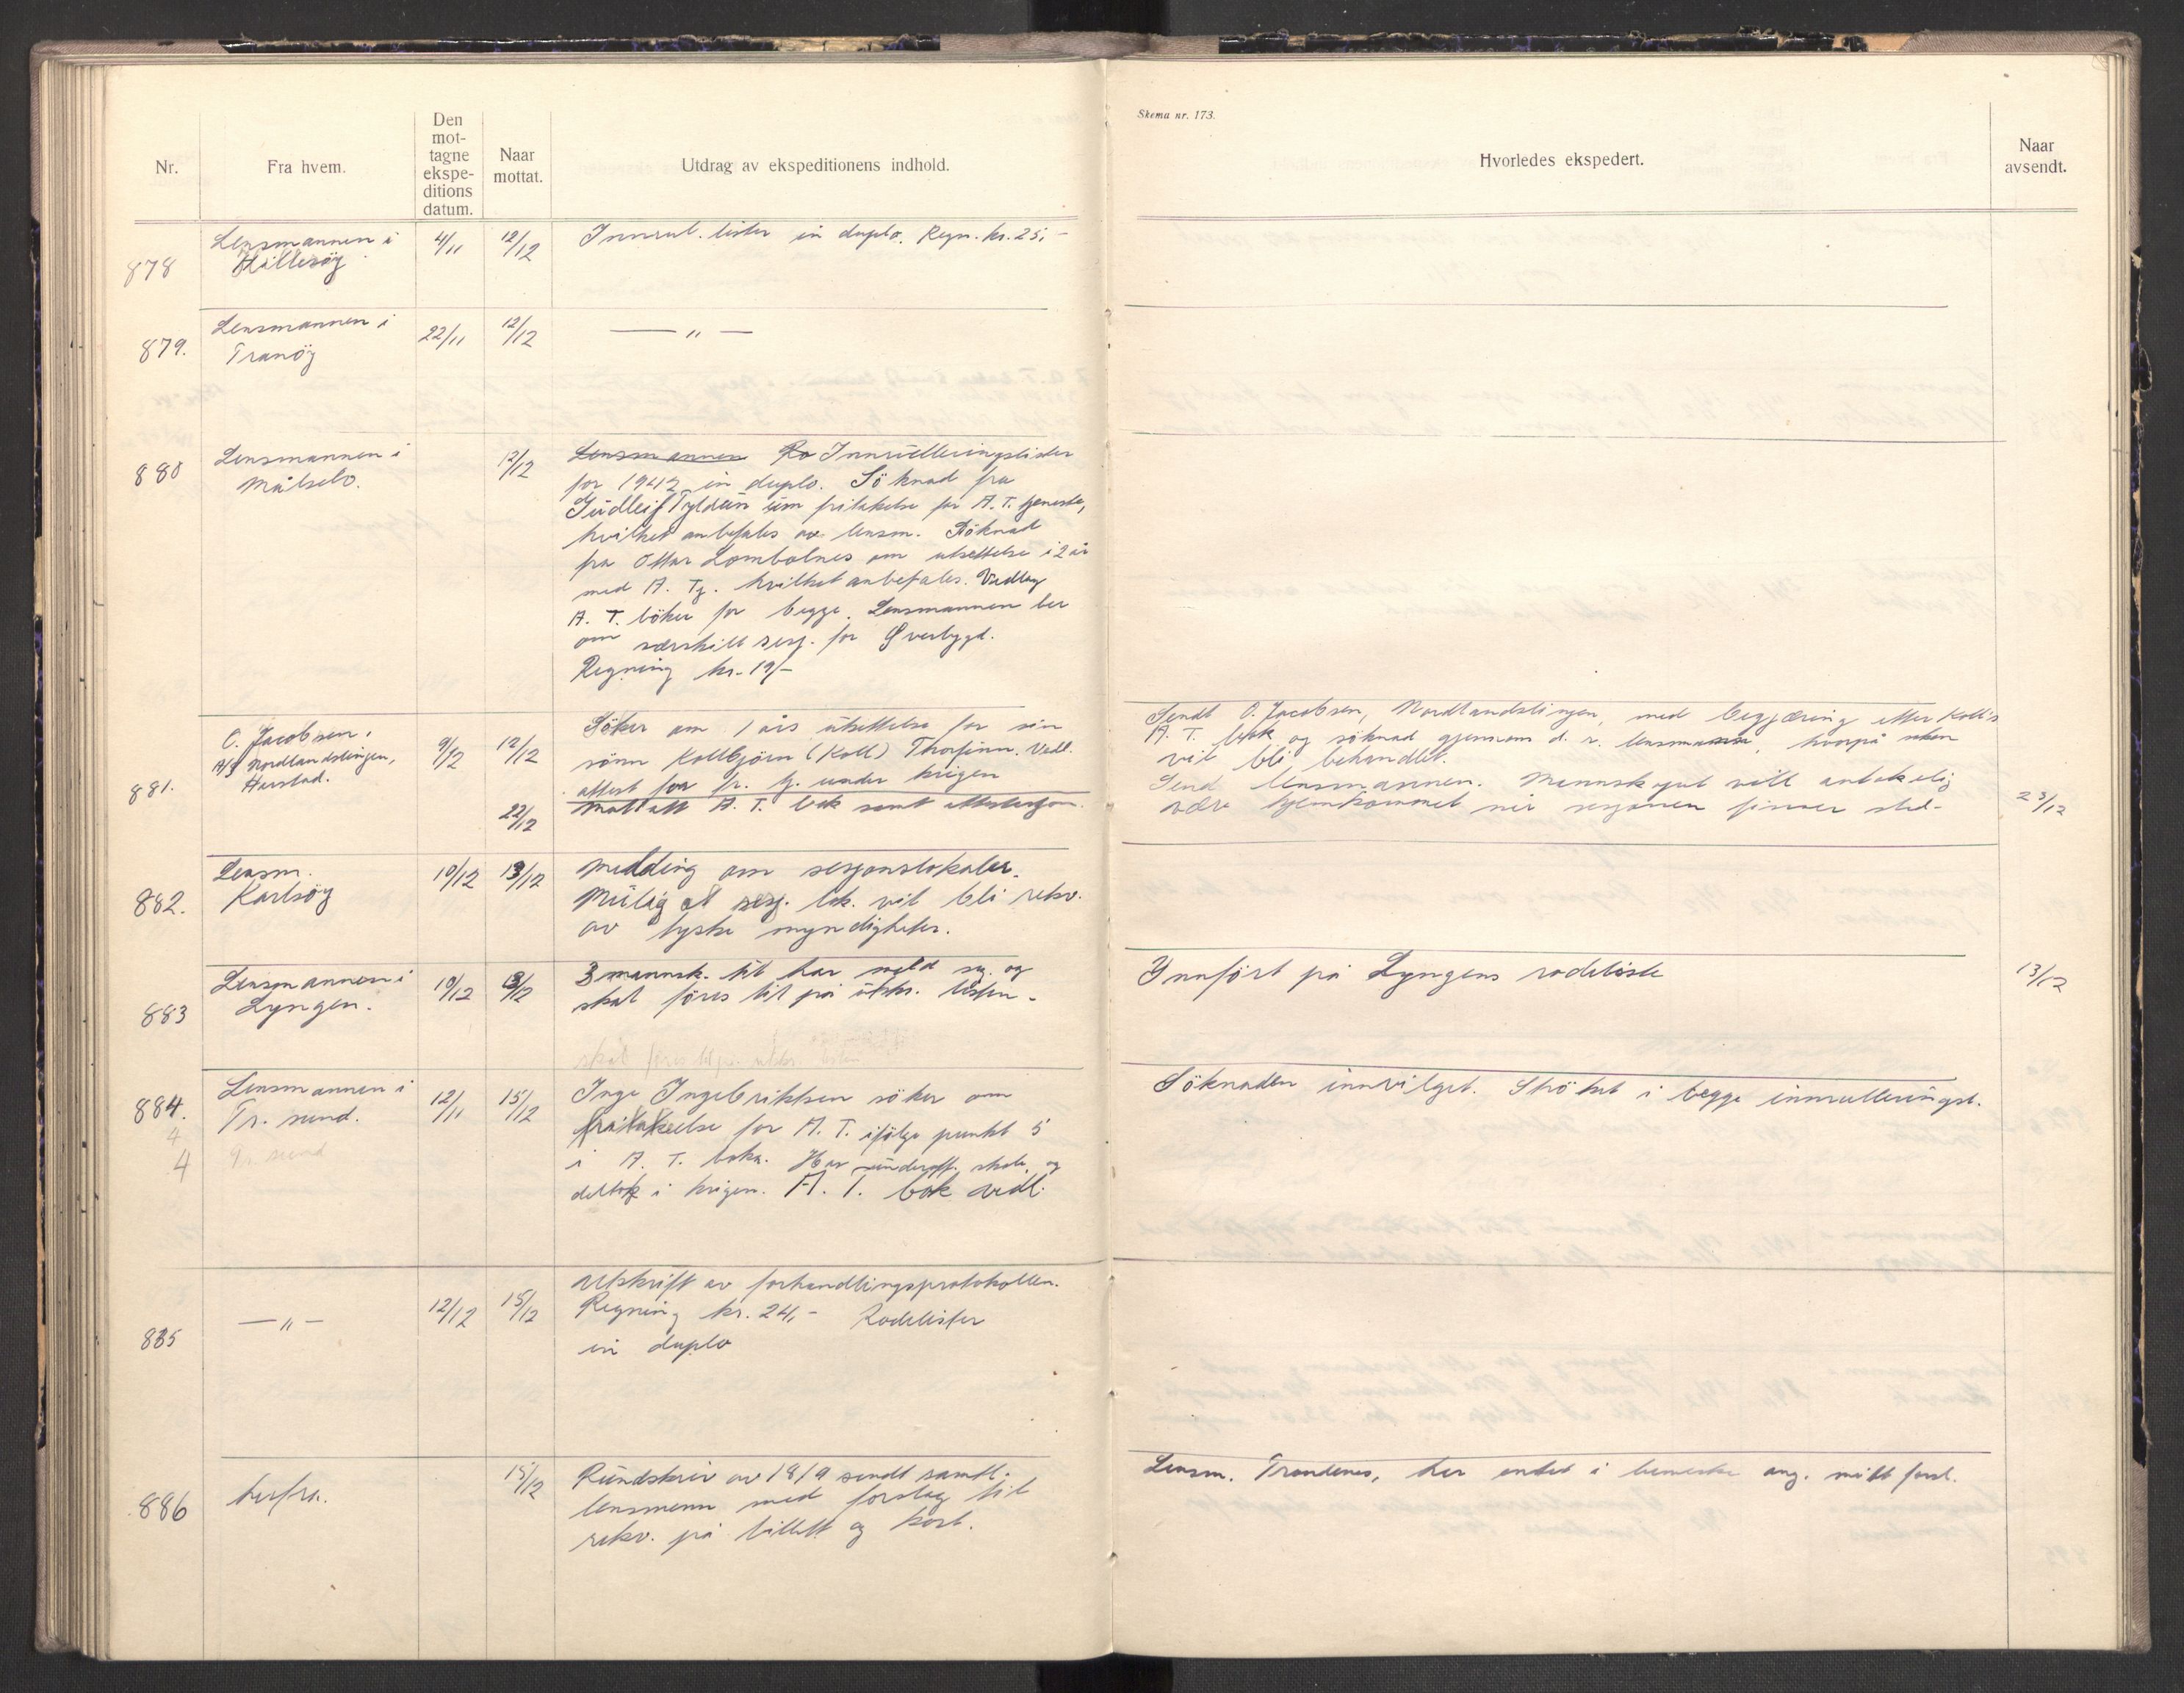 Skema nr. 173.
Nr.
Fra hvem.
Den
mot-
tagne
ekspe-
ditions
datum.
Naar
mottat.
Utdrag av ekspeditionens indhold.
Hvorledes ekspedert.
Naar
avsendt.
878
Lensmannen i
Hillesöy
4/11
12/12
Innrul. lister in duplo. Regn. kr. 25,-
879.
Lensmannen i
Tranöy
22/11
12/12
— " —
880
Lensmannen i
Målselv.
12/12
Lensmannen Ro Innrulleringslister
for 1942 in duplo. Söknad fra
om fritakelse for A. T. tjeneste,
hvilket anbefales av lensm. Söknad
fra Ottar Lombolnes om utsettelse i 2 år
med A. Tj. hvilket anbefales. Vedlag
A. T. böker for begge. Lensmannen ber
om særskilt sesj. for Överbygd.
Regning kr. 19,-
881.
O. Jacobsen,
A/S Nordlandslinjen,
Harstad.
9/12
12/12
Söker om 1 års utsettelse for sin
sönn Kollbjörn (Koll) Thorfinn. Vedl.
attest for fr. tj. under krigen
22/12
Mottatt A. T. bok samt attestasjon.
Sendt O. Jacobsen, Nordlandslinjen, med begjæring etter Koll's
A. T. bok og söknad gjennem d. r. lensmann, hvorpå saken
vil bli behandlet.
Send lensmannen. Mannskapet vill antakelig
være hjemkommet når sesjonen finner sted.
23/12
882.
Lensm.
Karlsöy
10/12
13/12
Melding om sesjonslokaler.
Mulig at sesj. lok. vil bli rekv.
av tyske myndigheter.
883
Lensmannen i
Lyngen.
10/12
13/12
3 mannsk. til har meld sig og
skal föres til på utskr. listen.
Innfört på Lyngens rodeliste
13/12
skal föres til på utskr. listen
884.
Lensmannen i
Tr. sund.
12/11
15/12
Inge Ingebriktsen söker om
fritakelse for A. T. ifölge punkt 5
i A. T. boka. Har underoff. skole og
deltok i krigen. A. T. bok vedl.
Söknaden innvilget. Ströket i begge innrulleringsl.
4
4
Tr. sund
885
— " —
12/12
15/12
Utskrift av forhandlingsprotokollen.
Regning kr. 24,- Rodelister
in duplo
886
herfra.
15/12
Rundskriv av 18/9 sendt samtl.
lensmenn med forslag til
rekv. på billett og kost.
Lensm. Trondenes, har intet i bemerke ang. mitt forsl.